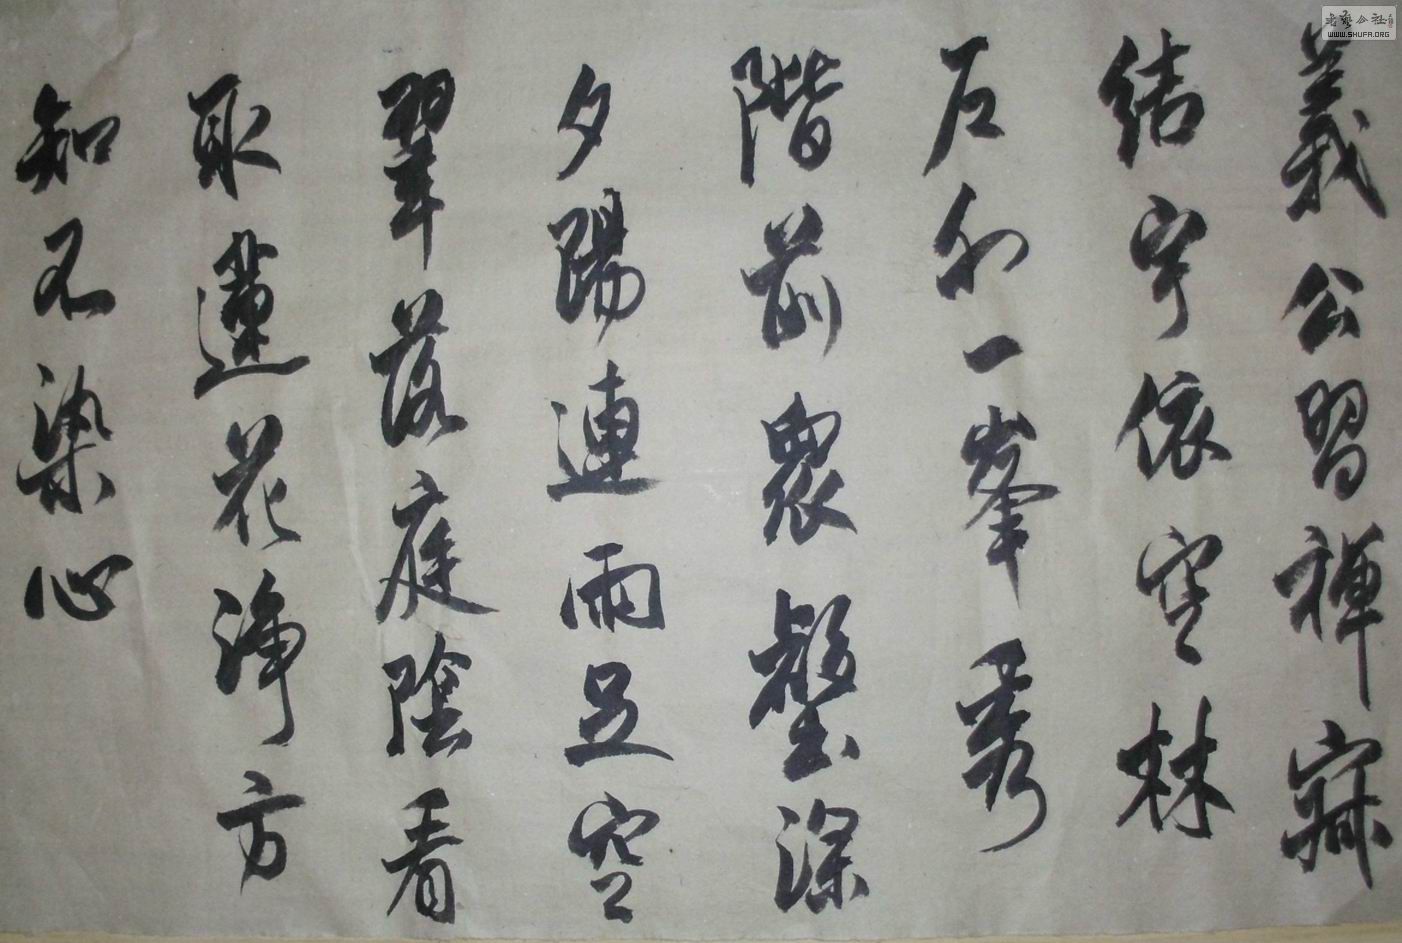 義公習禪寂
結宇依空林
戶外一峯秀
階前眾壑深
夕陽連雨足空
翠落庭陰看
取蓮花淨方
知不染心
书艺公社
WWW.SHUFA.ORG